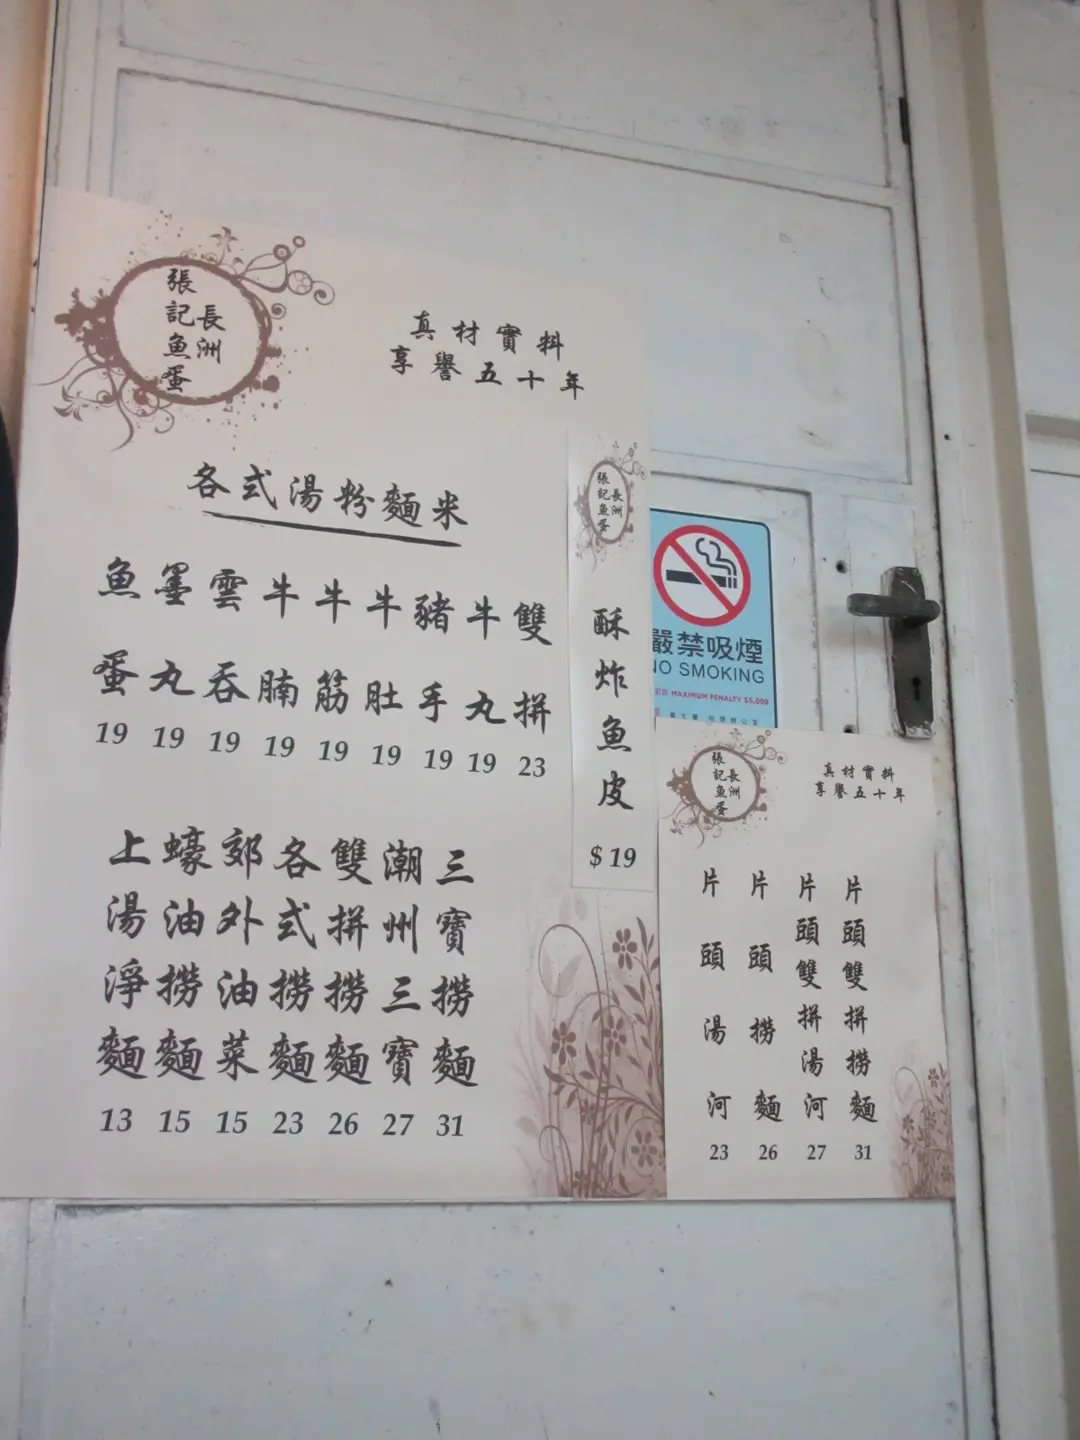 長洲
張記魚蛋
真材實料
享譽五十年
各式湯粉麵米
魚蛋 19
墨丸 19
雲吞 19
牛腩 19
牛筋 19
牛肚 19
豬手 19
牛丸 19
雙拼 23
上湯淨麵 13
蠔油撈麵 15
郊外油菜 15
各式撈麵 23
雙拼撈麵 26
潮州三寶 27
三寶撈麵 31
長洲
張記魚蛋
酥炸魚皮
$19
嚴禁吸煙
NO SMOKING
MAXIMUM PENALTY $5,000
長洲
張記魚蛋
真材實料
享譽五十年
片頭湯河 23
片頭撈麵 26
片頭雙拼湯河 27
片頭雙拼撈麵 31